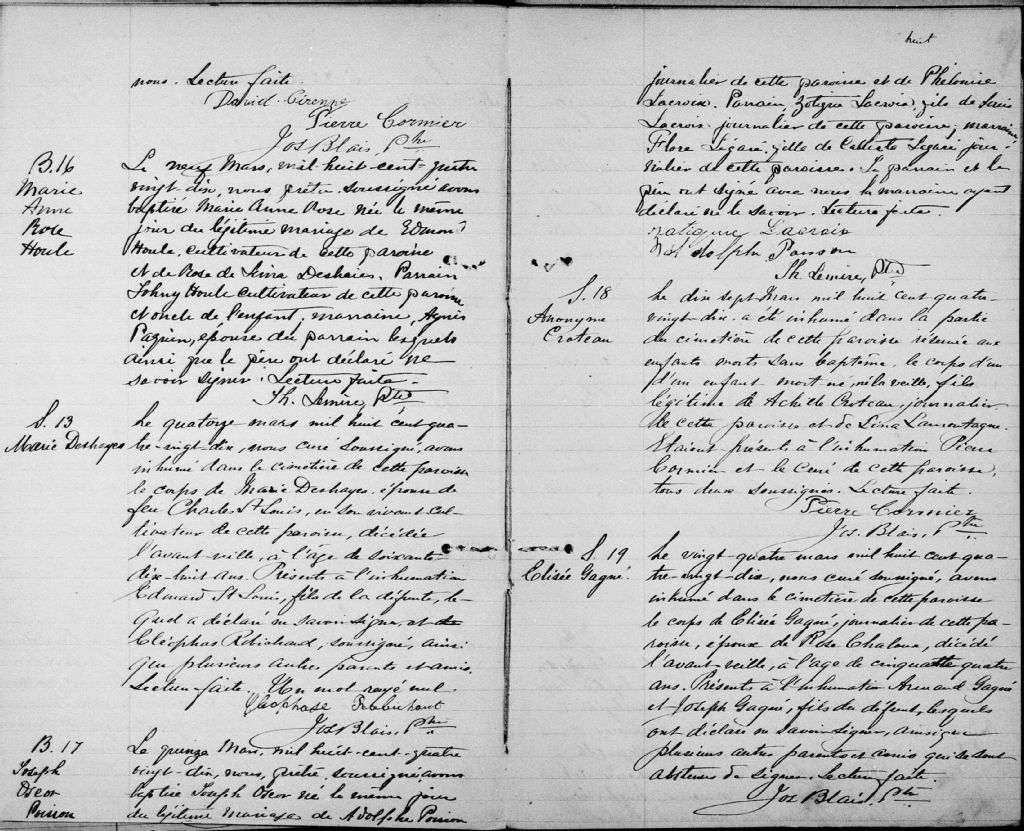 nous. Lecture faite.
David Cirenne
Pierre Cormier
Jos Blais, Ptre
B. 16
Marie
Anne
Rose
Houle
Le neuf Mars, mil huit-cent-quatre
vingt-dix, nous prêtre soussigné avons
baptisé Marie Anna Rose née le même
jour du légitime mariage de Edmond
Houle, cultivateur de cette paroisse
et de Rose de Lima Deshaies. Parrain
Johny Houle cultivateur de cette paroisse
et oncle de l'enfant; marraine, Agnès
Paquin, épouse du parrain lesquels
ainsi que le père ont déclaré ne
savoir signer. Lecture faite.
Th. Lemire, Ptre
S. 13
Marie Deshayes
Le quatorze mars mil huit cent qua-
tre-vingt-dix, nous curé soussigné, avons
inhumé dans le cimetière de cette paroisse
le corps de Marie Deshayes, épouse de
feu Charles St Louis, en son vivant cul-
tivateur de cette paroisse, décédée
l'avant veille, à l'âge de soixante-
dix-huit ans. Présents à l'inhumation
Edouard St Louis, fils de la défunte, le-
quel a déclaré ne savoir signer, et
Cléophas Robichaud, soussigné, ainsi
que plusieurs autres parents et amis.
Lecture faite. Un mot rayé nul.
Jos Blais, Ptre
B. 17
Joseph
Oscar
Poisson
Le quinze Mars, mil huit-cent-quatre
vingt-dix, nous, prêtre, soussigné avons
baptisé Joseph Oscar né le même jour
du légitime mariage de Adolphe Poisson
huit
journalier de cette paroisse et de Philomise
Lacroix. Parrain, Zotique Lacroix, fils de Louis
Lacroix journalier de cette paroisse; marraine,
Flore Légaré, fille de Calixte Légaré jour-
nalier de cette paroisse. Le parrain et le
père ont signé avec nous la marraine ayant
déclaré ne le savoir. Lecture faite.
Lacroix
dolph Poisson
Th. Lemire, Ptre
S. 18
Anonyme
Croteau
Le dix sept Mars mil huit cent quatre-
vingt-dix a été inhumé dans la partie
du cimetière de cette paroisse réservée aux
enfants morts sans baptême, le corps d'un
d'un enfant mort né, né la veille, fils
légitime de Achille Croteau, journalier
de cette paroisse et de Lina Lamontagne.
Etaient présents à l'inhumation Pierre
Cormier et le Curé de cette paroisse,
tous deux soussignés. Lecture faite.
Pierre Cormier
Jos. Blais, Ptre
S. 19
Elisée Gagné.
Le vingt quatre mars mil huit cent qua-
tre-vingt-dix, nous curé soussigné, avons
inhumé dans le cimetière de cette paroisse
le corps de Elisée Gagné, journalier de cette pa-
roisse, époux de Rose Chaloux, décédé
l'avant-veille, à l'âge de cinquante quatre
ans. Présents à l'inhumation Armand Gagné
et Joseph Gagné, fils du défunt, lesquels
ont déclaré ne savoir signer, ainsi que
plusieurs autres parents et amis qui se sont
abstenus de signer. Lecture faite.
Jos Blais, Ptre